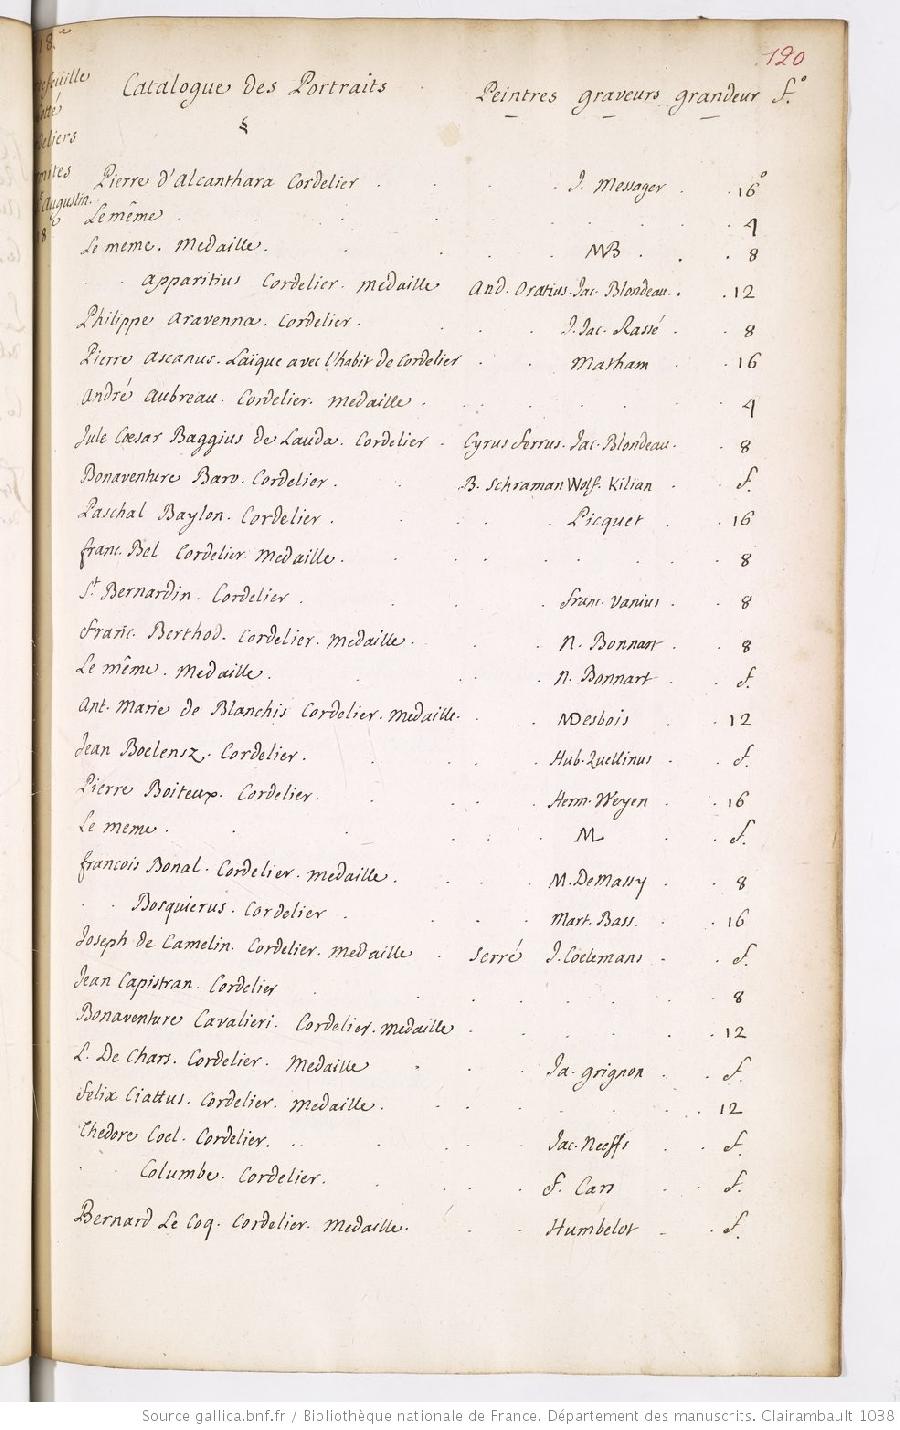 120
Catalogue des Portraits Peintres graveurs grandeur f.°
§
Pierre d'Alcanthara Cordelier . J. Messager . 16°
Le même . 4
Le meme. Medaille. MB . 8
apparitius Cordelier. medaille And. Oratius. Jac. Blondeau. 12
Philippe aravenna. Cordelier. J. Jac. Rassé . 8
Pierre ascanus. Laique avec l'habit de Cordelier . Matham . 16
André aubreau. Cordelier. medaille . 4
Jule Cæsar Baggius de Lauda. Cordelier . Cyrus ferrus. Jac. Blondeau. 8
Bonaventure Baro. Cordelier. B. Schraman Wolf. Kilian . f.
Paschal Baylon. Cordelier. Picquet . 16
franc. Bel Cordelier medaille. 8
St. Bernardin. Cordelier. franc. Vanius . 8
franc. Berthod. Cordelier. medaille. N. Bonnart . 8
Le même. medaille. N. Bonnart . f.
Ant. Marie de Blanchis Cordelier. medaille. Desbois . 12
Jean Boelensz. Cordelier. Hub. Quellinus . f.
Pierre Boiteux. Cordelier Herm. Weyen . 16
Le meme. M . f.
françois Bonal. Cordelier. medaille. M. De Massy . 8
Bosquierus. Cordelier . Mart. Bass. 16
Joseph de Camelin. Cordelier. medaille . Serré J. Coelemans . f.
Jean Capistran. Cordelier . 8
Bonaventure Cavalieri. Cordelier. medaille . 12
L. De Chars. Cordelier. medaille . Ja. grignon . f.
felix Ciattus. Cordelier. medaille. 12
Thedore Coel. Cordelier. Jac. Neeffs . f.
Columbe. Cordelier. f. Cars . f.
Bernard Le Coq. Cordelier. medaille. Humbelot . f.
Source gallica.bnf.fr / Bibliothèque nationale de France. Département des manuscrits. Clairambault 1038